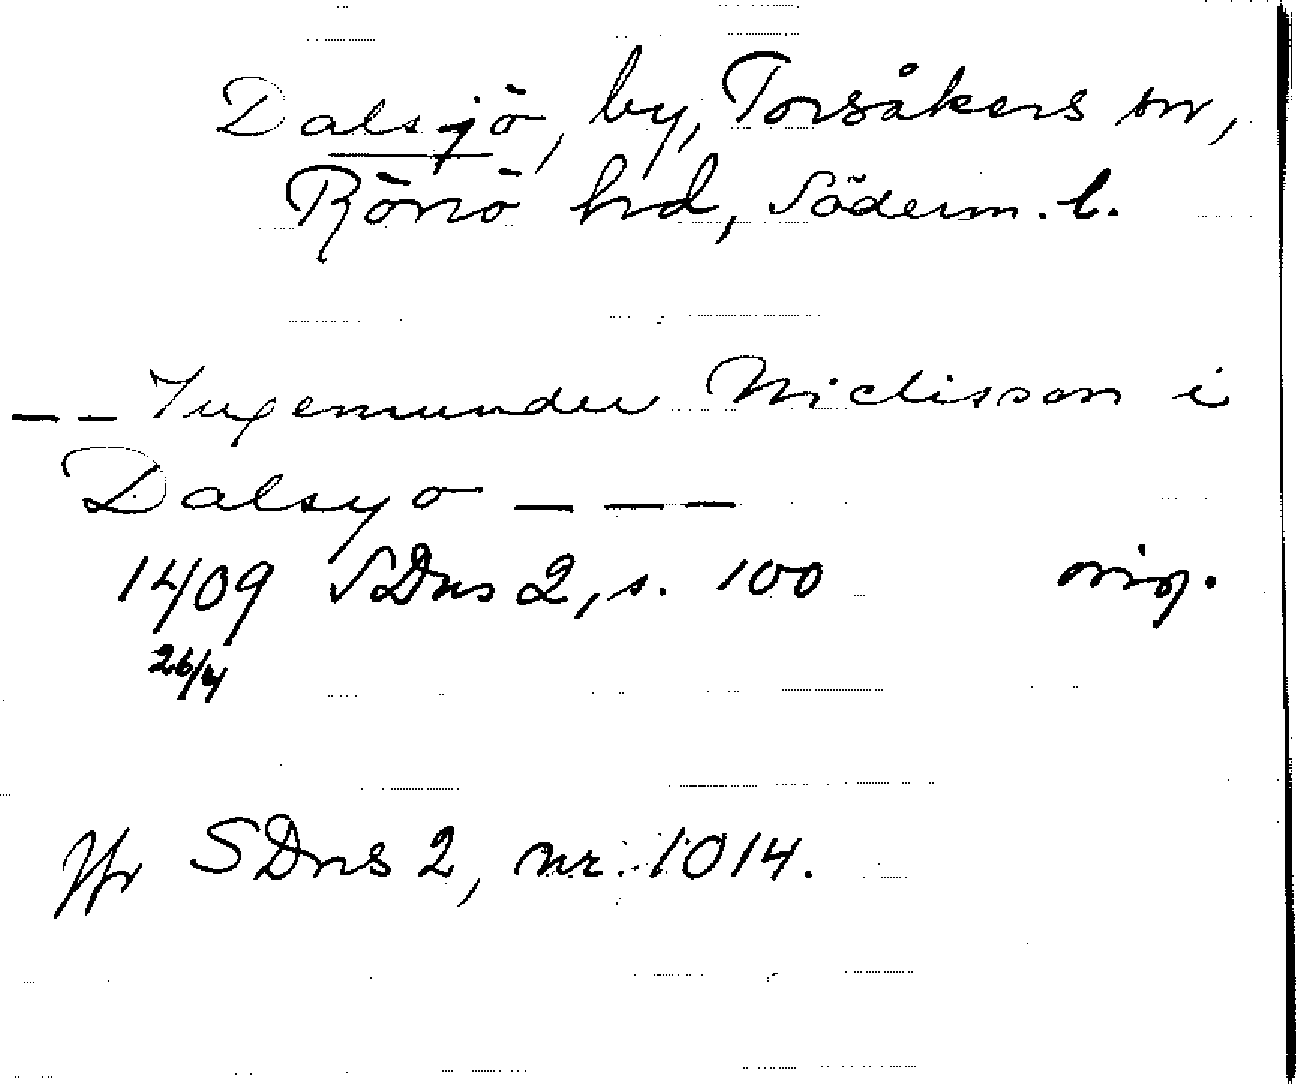 Dalsjö, by, Torsåkers sn,
Rönö hd, Söderm. l.
— — Ingemunder Niclisson i
Dalsyo — — —
1409 SDns 2, s. 100 orig.
26/4
Jfr SDns 2, nr. 1014.